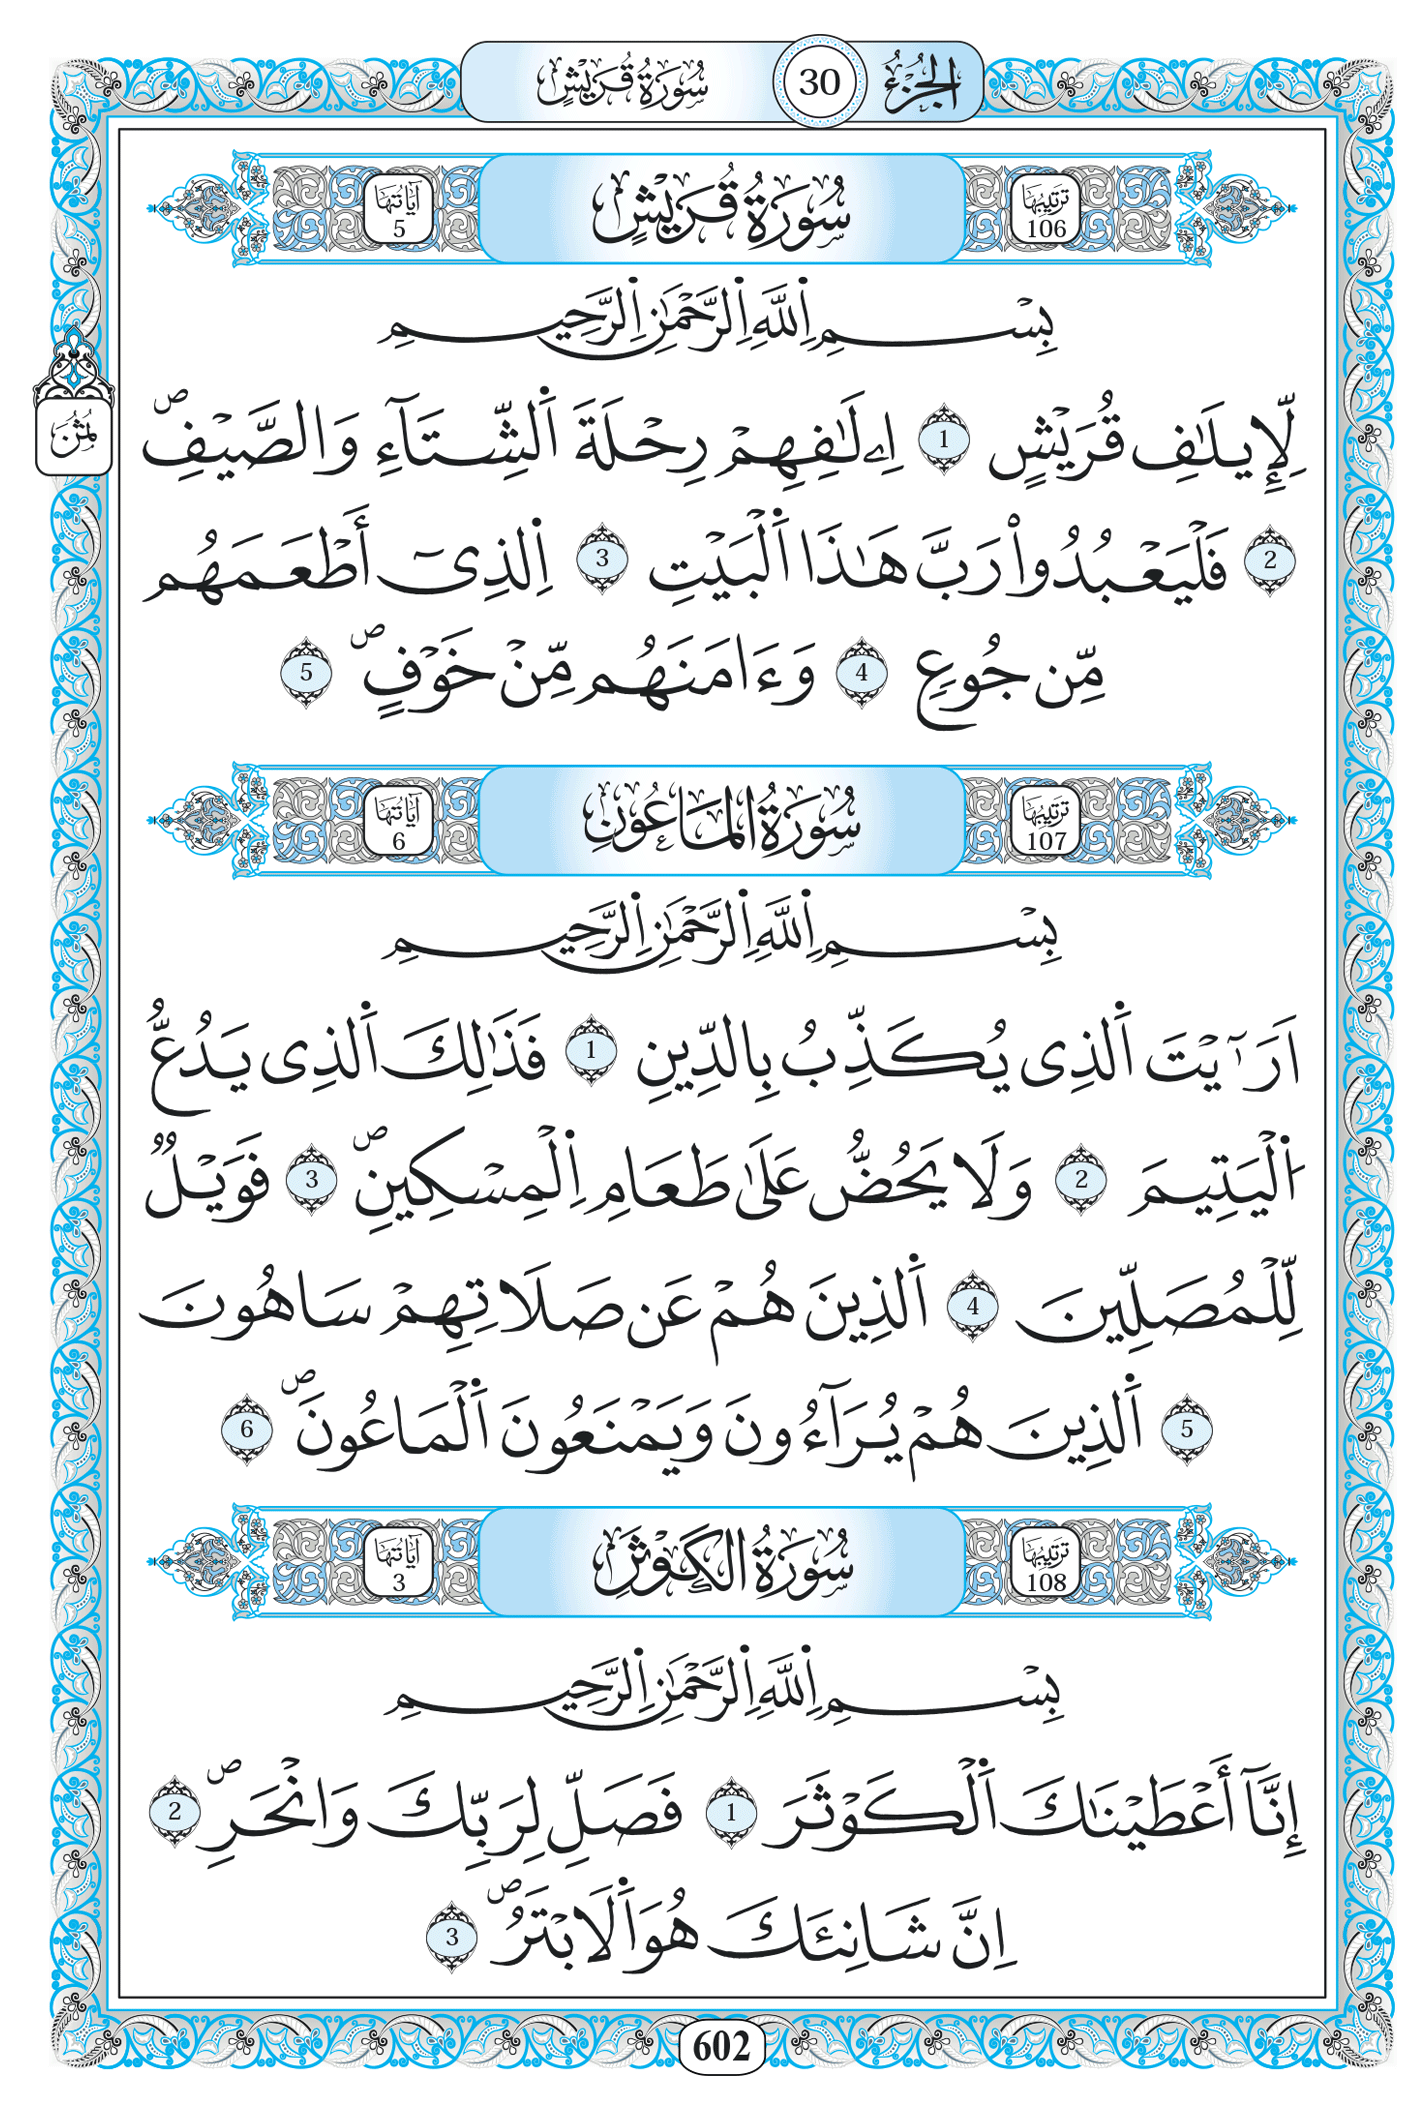 الجزء 30 سورة قريش
ترتيبها 106 سورة قريش آياتها 5
بِسْمِ اِ۬للَّهِ اِ۬لرَّحْمَٰنِ اِ۬لرَّحِيمِ
ثمن
لِّإِيلَٰفِ قُرَيْشٍ 1 اِۦلَٰفِهِمْ رِحْلَةَ اَ۬لشِّتَآءِ وَالصَّيْفِۖ
2 فَلْيَعْبُدُواْ رَبَّ هَٰذَا اَ۬لْبَيْتِ 3 اِ۬لذِےٓ أَطْعَمَهُم
مِّن جُوعٍ 4 وَءَامَنَهُم مِّنْ خَوْفٍۖ 5
ترتيبها 107 سورة الماعون آياتها 6
بِسْمِ اِ۬للَّهِ اِ۬لرَّحْمَٰنِ اِ۬لرَّحِيمِ
اَرَٰٓيْتَ اَ۬لذِے يُكَذِّبُ بِالدِّينِ 1 فَذَٰلِكَ اَ۬لذِے يَدُعُّ
اُ۬لْيَتِيمَ 2 وَلَا يَحُضُّ عَلَىٰ طَعَامِ اِ۬لْمِسْكِينِۖ 3 فَوَيْلٞ
لِّلْمُصَلِّينَ 4 اَ۬لذِينَ هُمْ عَن صَلَاتِهِمْ سَاهُونَ
5 اَ۬لذِينَ هُمْ يُرَآءُونَ وَيَمْنَعُونَ اَ۬لْمَاعُونَۖ 6
ترتيبها 108 سورة الكوثر آياتها 3
بِسْمِ اِ۬للَّهِ اِ۬لرَّحْمَٰنِ اِ۬لرَّحِيمِ
إِنَّآ أَعْطَيْنَٰكَ اَ۬لْكَوْثَرَ 1 فَصَلِّ لِرَبِّكَ وَانْحَرِۖ 2
اِنَّ شَانِئَكَ هُوَ اَ۬لَابْتَرُۖ 3
602